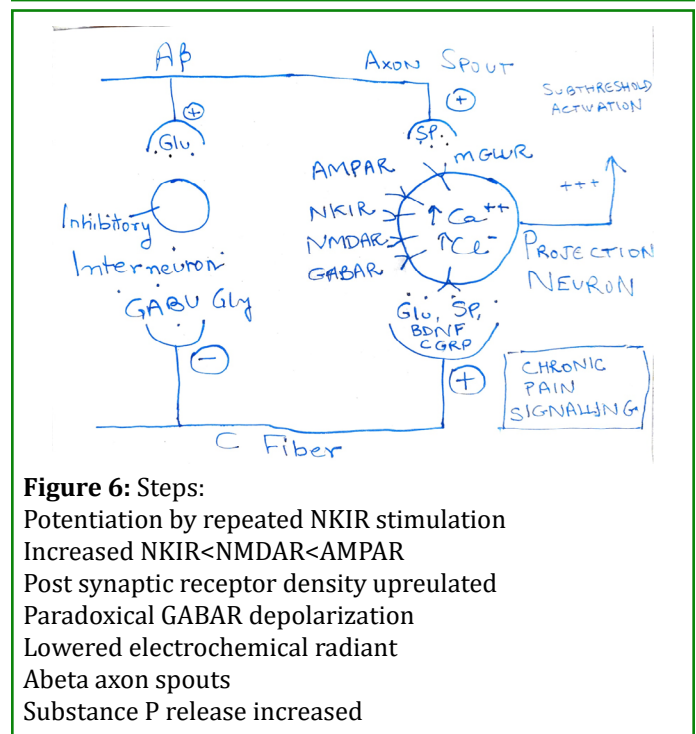 Aβ
AXON SPOUT
+
+
SUBTHRESHOLD
ACTIVATION
Glu
SP
AMPAR
MGLUR
+++
NKIR
↑Ca++
Inhibitory
NMDAR
↑Cl-
PROJECTION
Interneuron
GABAR
NEURON
GABU Gly
Glu, SP,
BDNF
CGRP
-
+
CHRONIC
PAIN
SIGNALLING
C Fiber
Figure 6: Steps:
Potentiation by repeated NKIR stimulation
Increased NKIR<NMDAR<AMPAR
Post synaptic receptor density upreulated
Paradoxical GABAR depolarization
Lowered electrochemical radiant
Abeta axon spouts
Substance P release increased